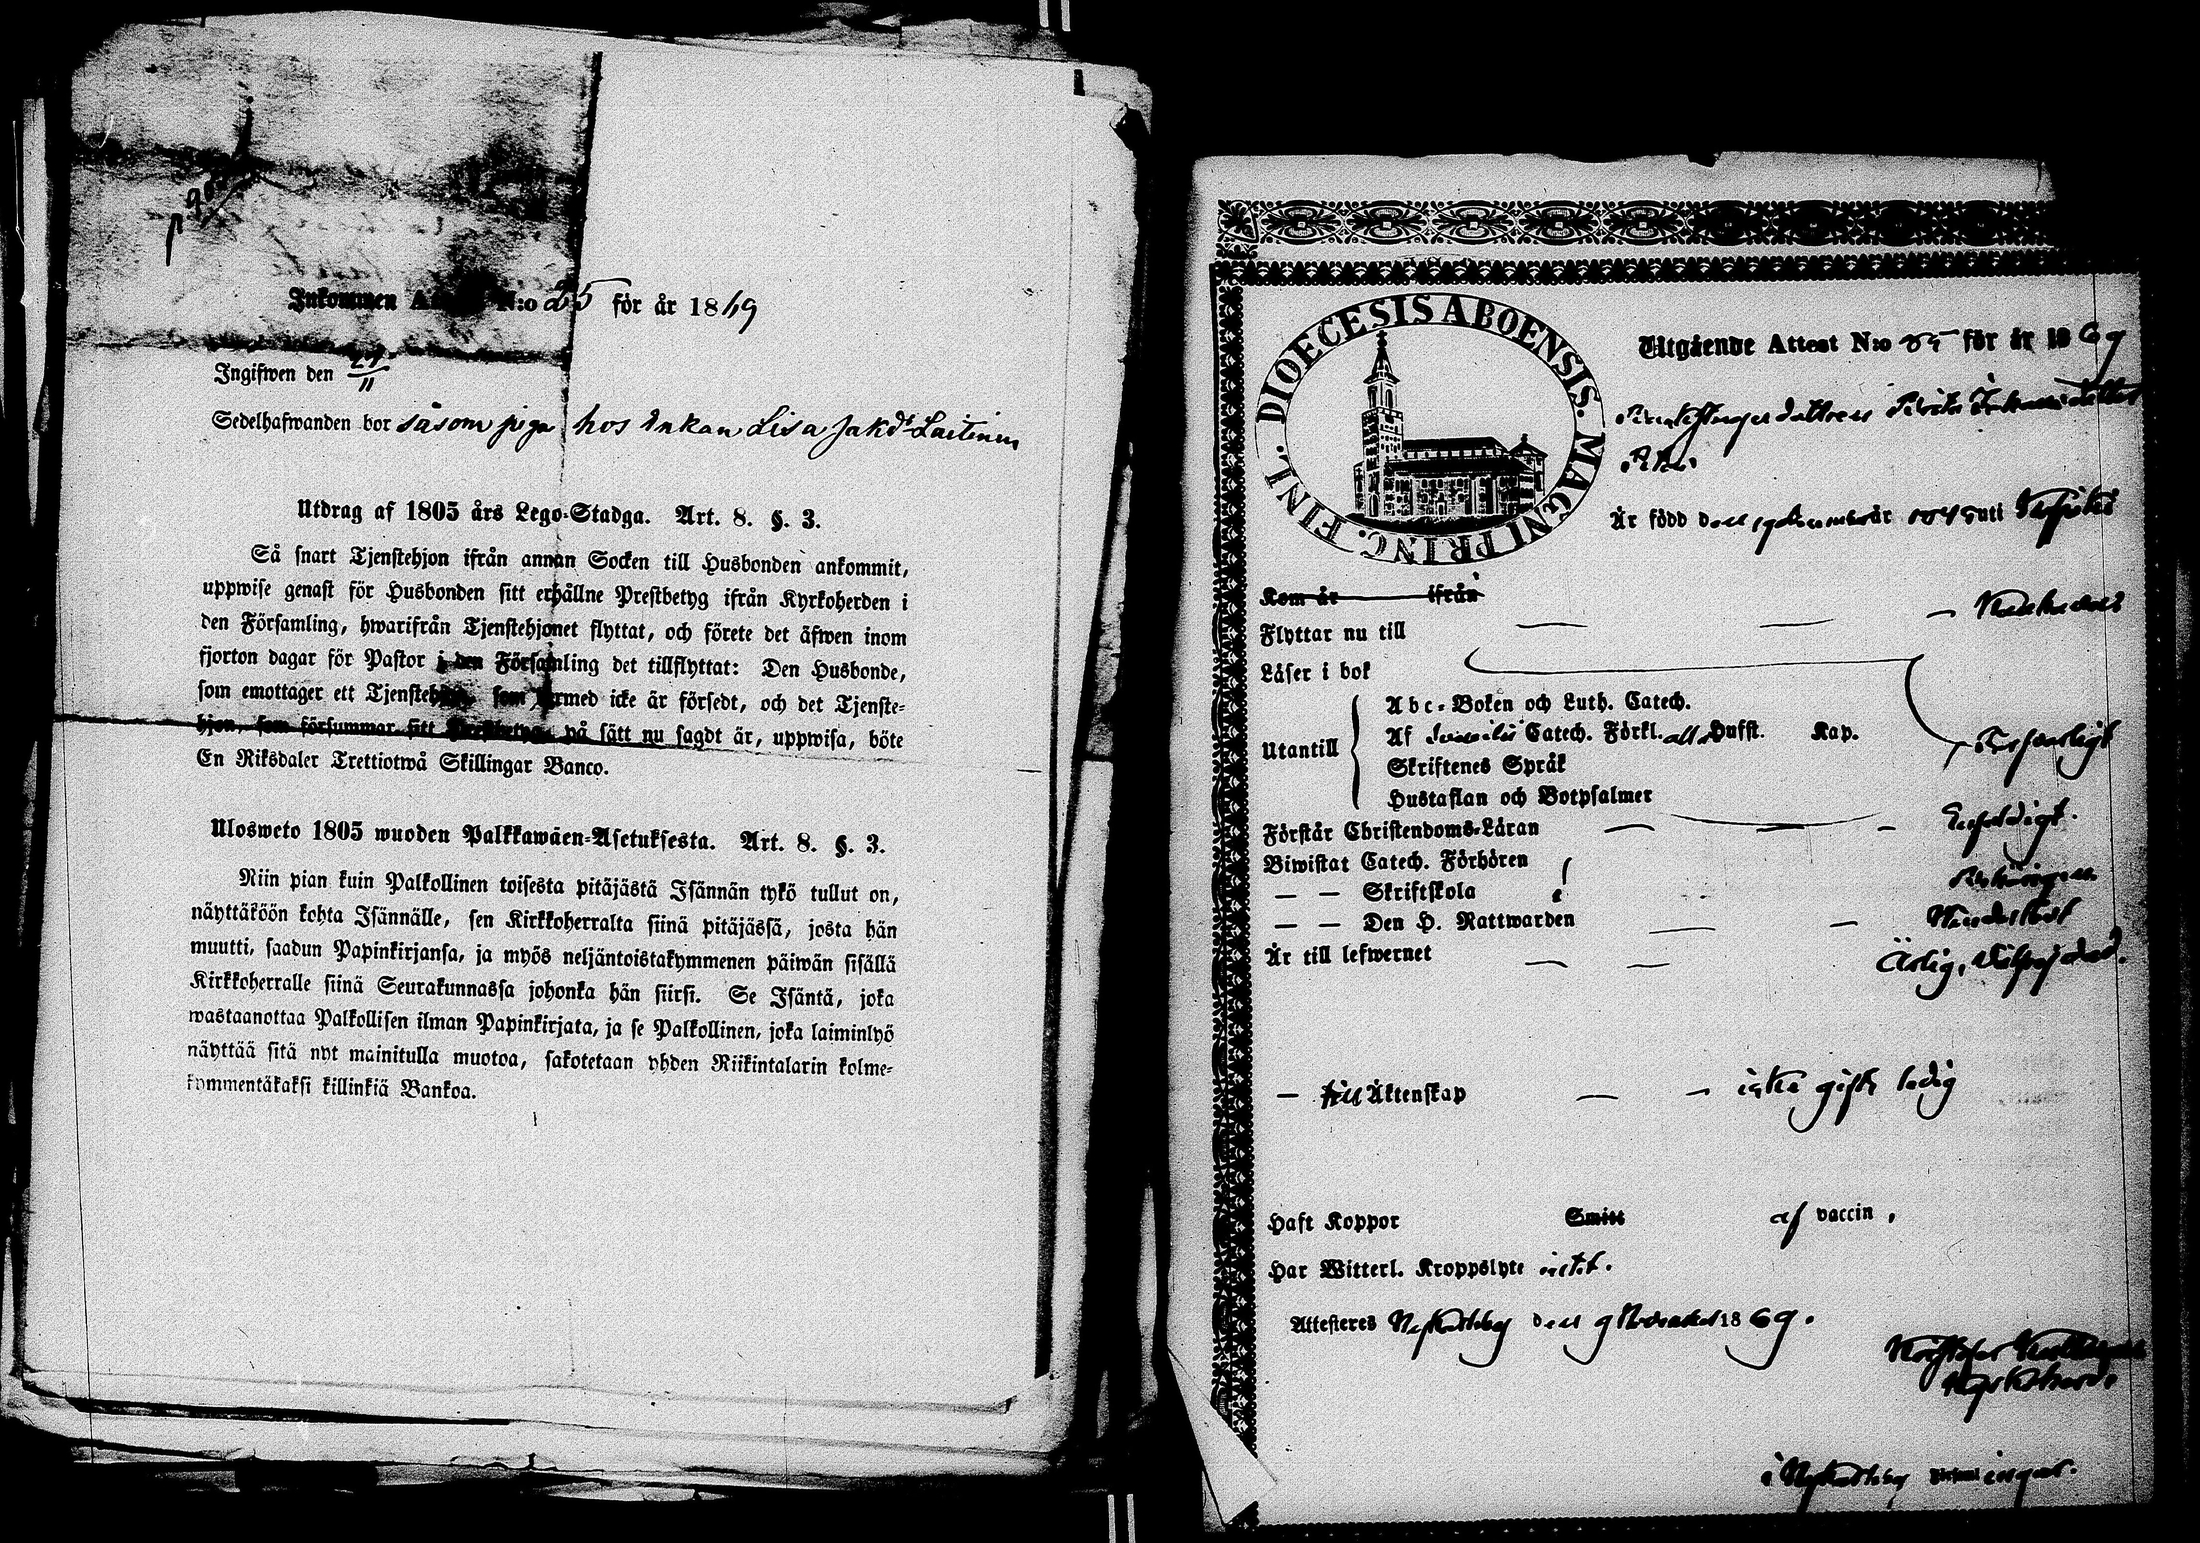 Inkommen N:o 25 för år 1869
Ingifwen den 29/11
Sedelhafwanden bor såsom piga hos Enkan Lisa Jakdr Laitinen
Utdrag af 1805 års Lego-Stadga. Art. 8. §. 3.
Så snart Tjenstehjon ifrån annan Socken till Husbonden ankommit,
uppwise genast för Husbonden sitt erhållne Prestbetyg ifrån Kyrkoherden i
den Församling, hwarifrån Tjenstehjonet flyttat, och förete det äfwen inom
fjorton dagar för Pastor i den Församling det tillflyttat: Den Husbonde,
som emottager ett Tjenstehjon, som dermed icke är försedt, och det Tjenste-
hjon, som försummar sitt Prestbetyg, på sätt nu sagdt är, uppwisa, böte
En Riksdaler Trettiotwå Skillingar Banco.
Ulosweto 1805 wuoden Palkkawäen-Asetuksesta. Art. 8. §. 3.
Niin pian kuin Palkollinen toisesta pitäjästä Isännän tykö tullut on,
näyttäköön kohta Isännälle, sen Kirkkoherralta siinä pitäjässä, josta hän
muutti, saadun Papinkirjansa, ja myös neljäntoistakymmenen päiwän sisällä
Kirkkoherralle siinä Seurakunnassa johonka hän siirsi. Se Isäntä, joka
wastaanottaa Palkollisen ilman Papinkirjata, ja se Palkollinen, joka laiminlyö
näyttää sitä nyt mainitulla muotoa, sakotetaan yhden Riikintalarin kolme-
kymmentäkaksi killinkiä Bankoa.
DIOECESIS ABOENSIS. MAGNI PRINC. FINL.
Utgående Attest N:o för år 1869
Är född den år uti
Kom år ifrån
Flyttar nu till
Läser i bok
Utantill
Abc-Boken och Luth. Catech.
Af Svebilii Catech. Förkl. alla Hufst. Kap.
Skriftenes Språk
Hustaflan och Botpsalmer
Försvarligt
Förstår Christendoms-Läran Enfaldigt.
Biwistat Catech. Förhören
— — Skriftskola
— — Den H. Nattwarden
Är till lefwernet Ärlig,
— till Äktenskap icke gift, ledig
Haft Koppor Smitt af vaccin,
Har Witterl. Kroppslyte intet.
Attesteres Nykarleby den 9 November 1869.
i Nykarleby